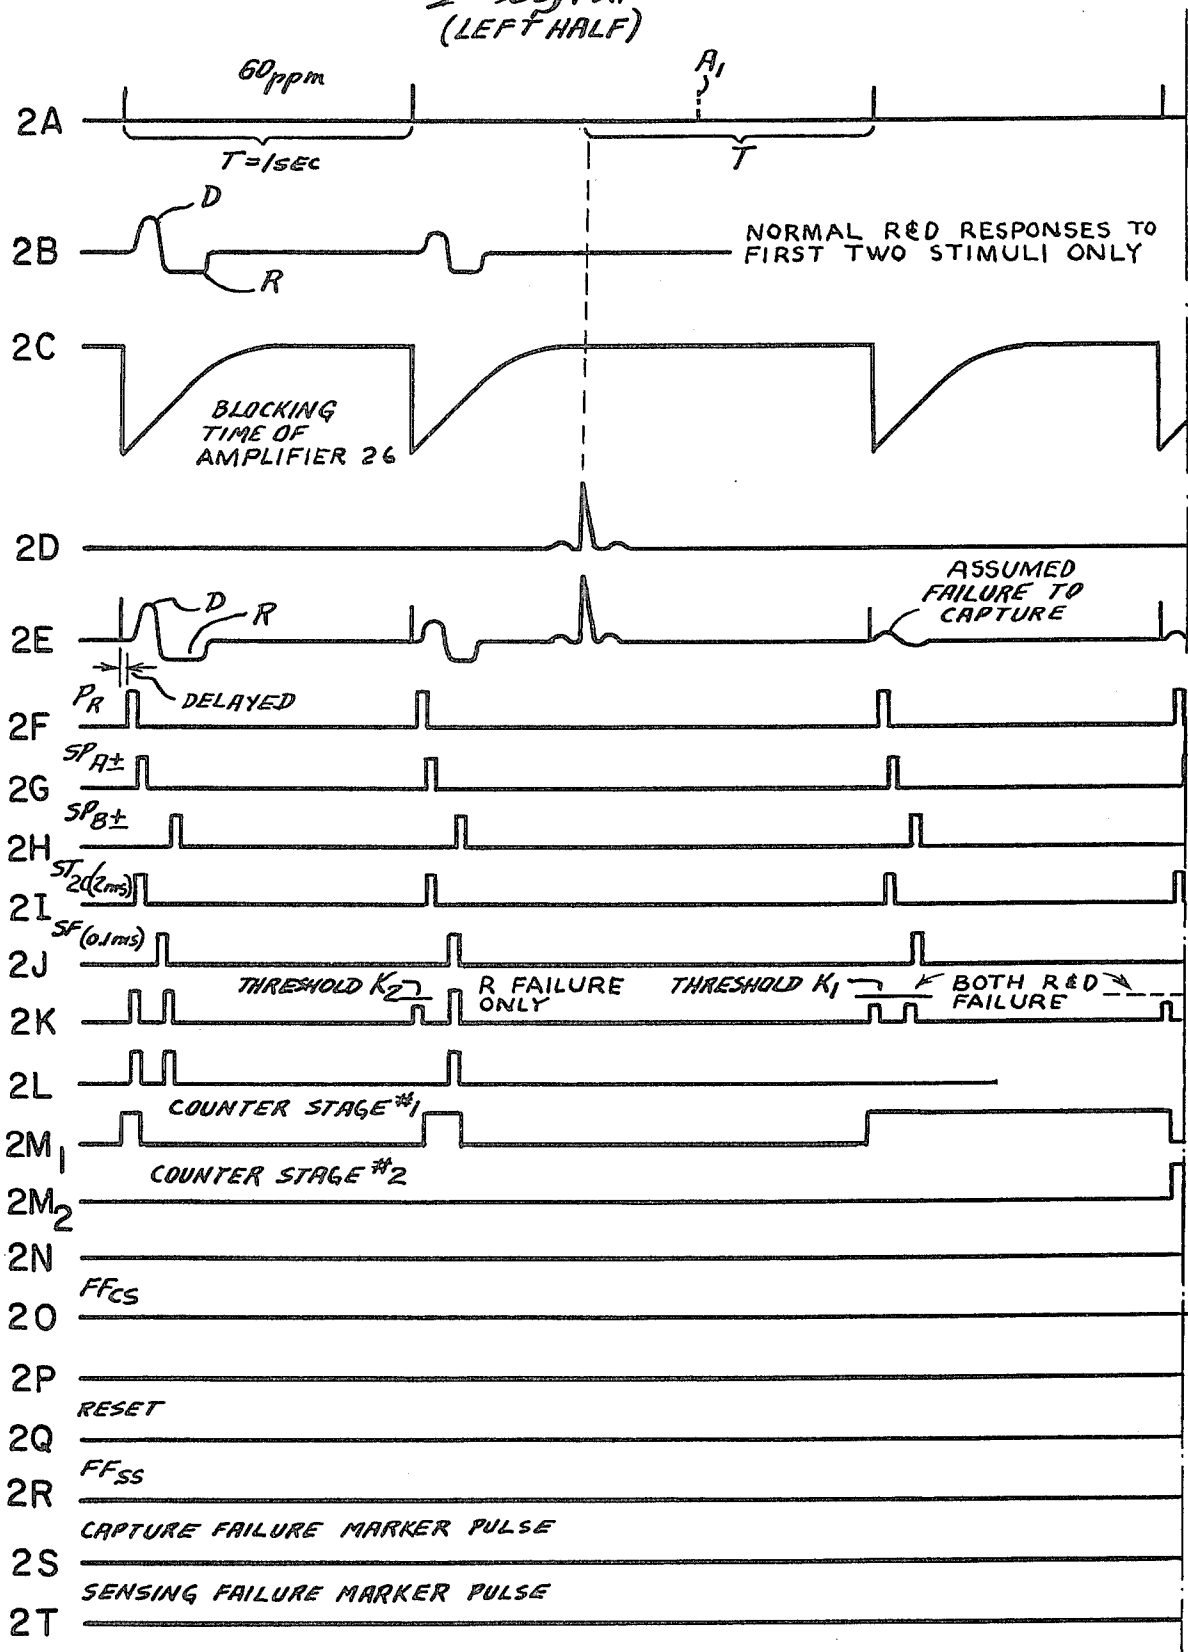 (LEFT HALF)
60ppm
A1
2A
T=1SEC
T
D
2B
NORMAL R&D RESPONSES TO
FIRST TWO STIMULI ONLY
R
2C
BLOCKING
TIME OF
AMPLIFIER 26
2D
ASSUMED
FAILURE TO
CAPTURE
D
R
2E
PR
DELAYED
2F
SPA±
2G
SPB±
2H
ST2C(2ms)
2I
SF(0.1ms)
2J
THRESHOLD K2
R FAILURE
ONLY
THRESHOLD K1
BOTH R&D
FAILURE
2K
2L
COUNTER STAGE #1
2M1
COUNTER STAGE #2
2M2
2N
FFCS
2O
2P
RESET
2Q
FFSS
2R
CAPTURE FAILURE MARKER PULSE
2S
SENSING FAILURE MARKER PULSE
2T